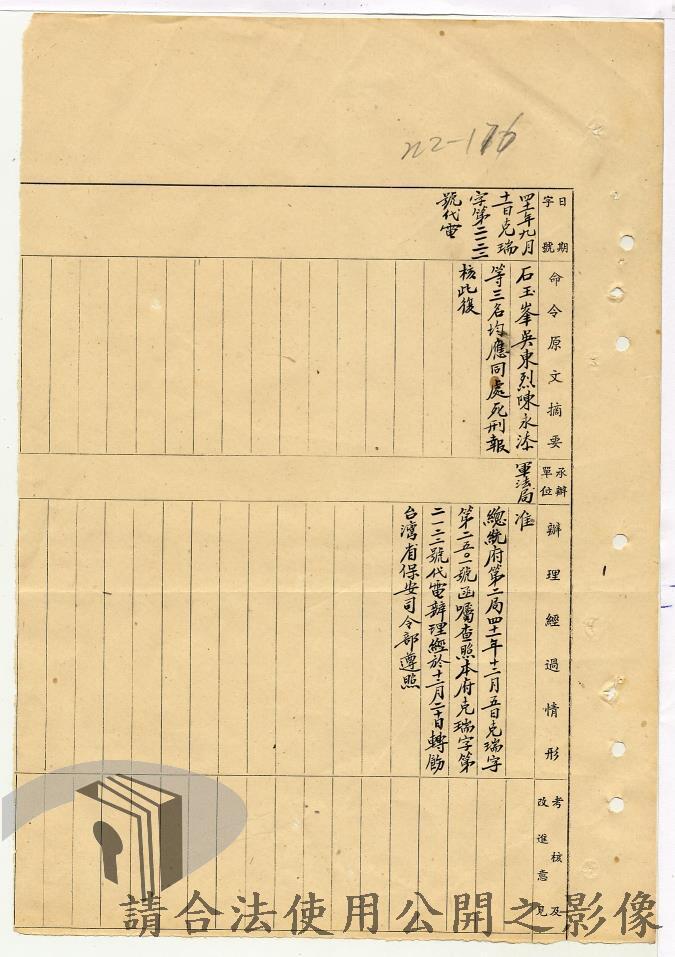 22-176
日期
字號
命令原文摘要
承辦
單位
辦理經過情形
考核及
改進意見
四十一年九月
日克瑞
字第
號代電
石玉峯吳東烈陳永添
等三名均應同處死刑報
核此復
軍法局
准
總統府第二局四十一年十二月五日克瑞字
第二五〇一號函囑查照本府克瑞字第
二一二二號代電辦理經於十二月二十日轉飭
台灣省保安司令部遵照
請合法使用公開之影像